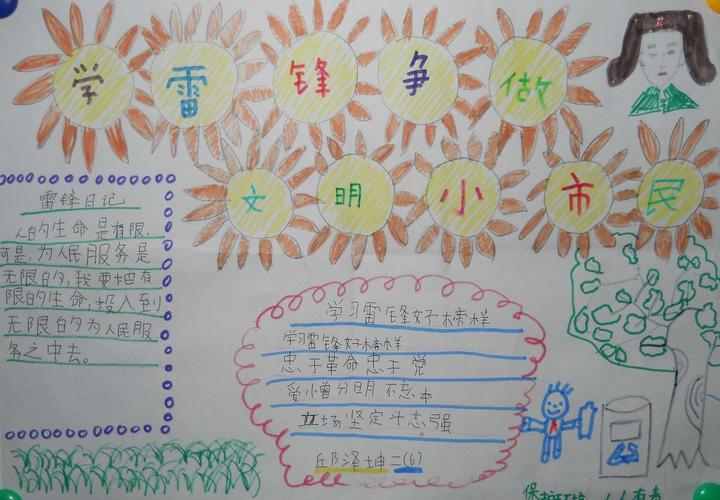 学雷锋争做
文明小市民
雷锋日记
人的生命是有限,
可是,为人民服务是
无限的,我要把有
限的生命,投入到
无限的为人民服
务之中去。
学习雷锋好榜样
学习雷锋好榜样
忠于革命忠于党
爱小曾分明不忘本
立场坚定斗志强
邱泽坤二(6)
保护环境 人人有责